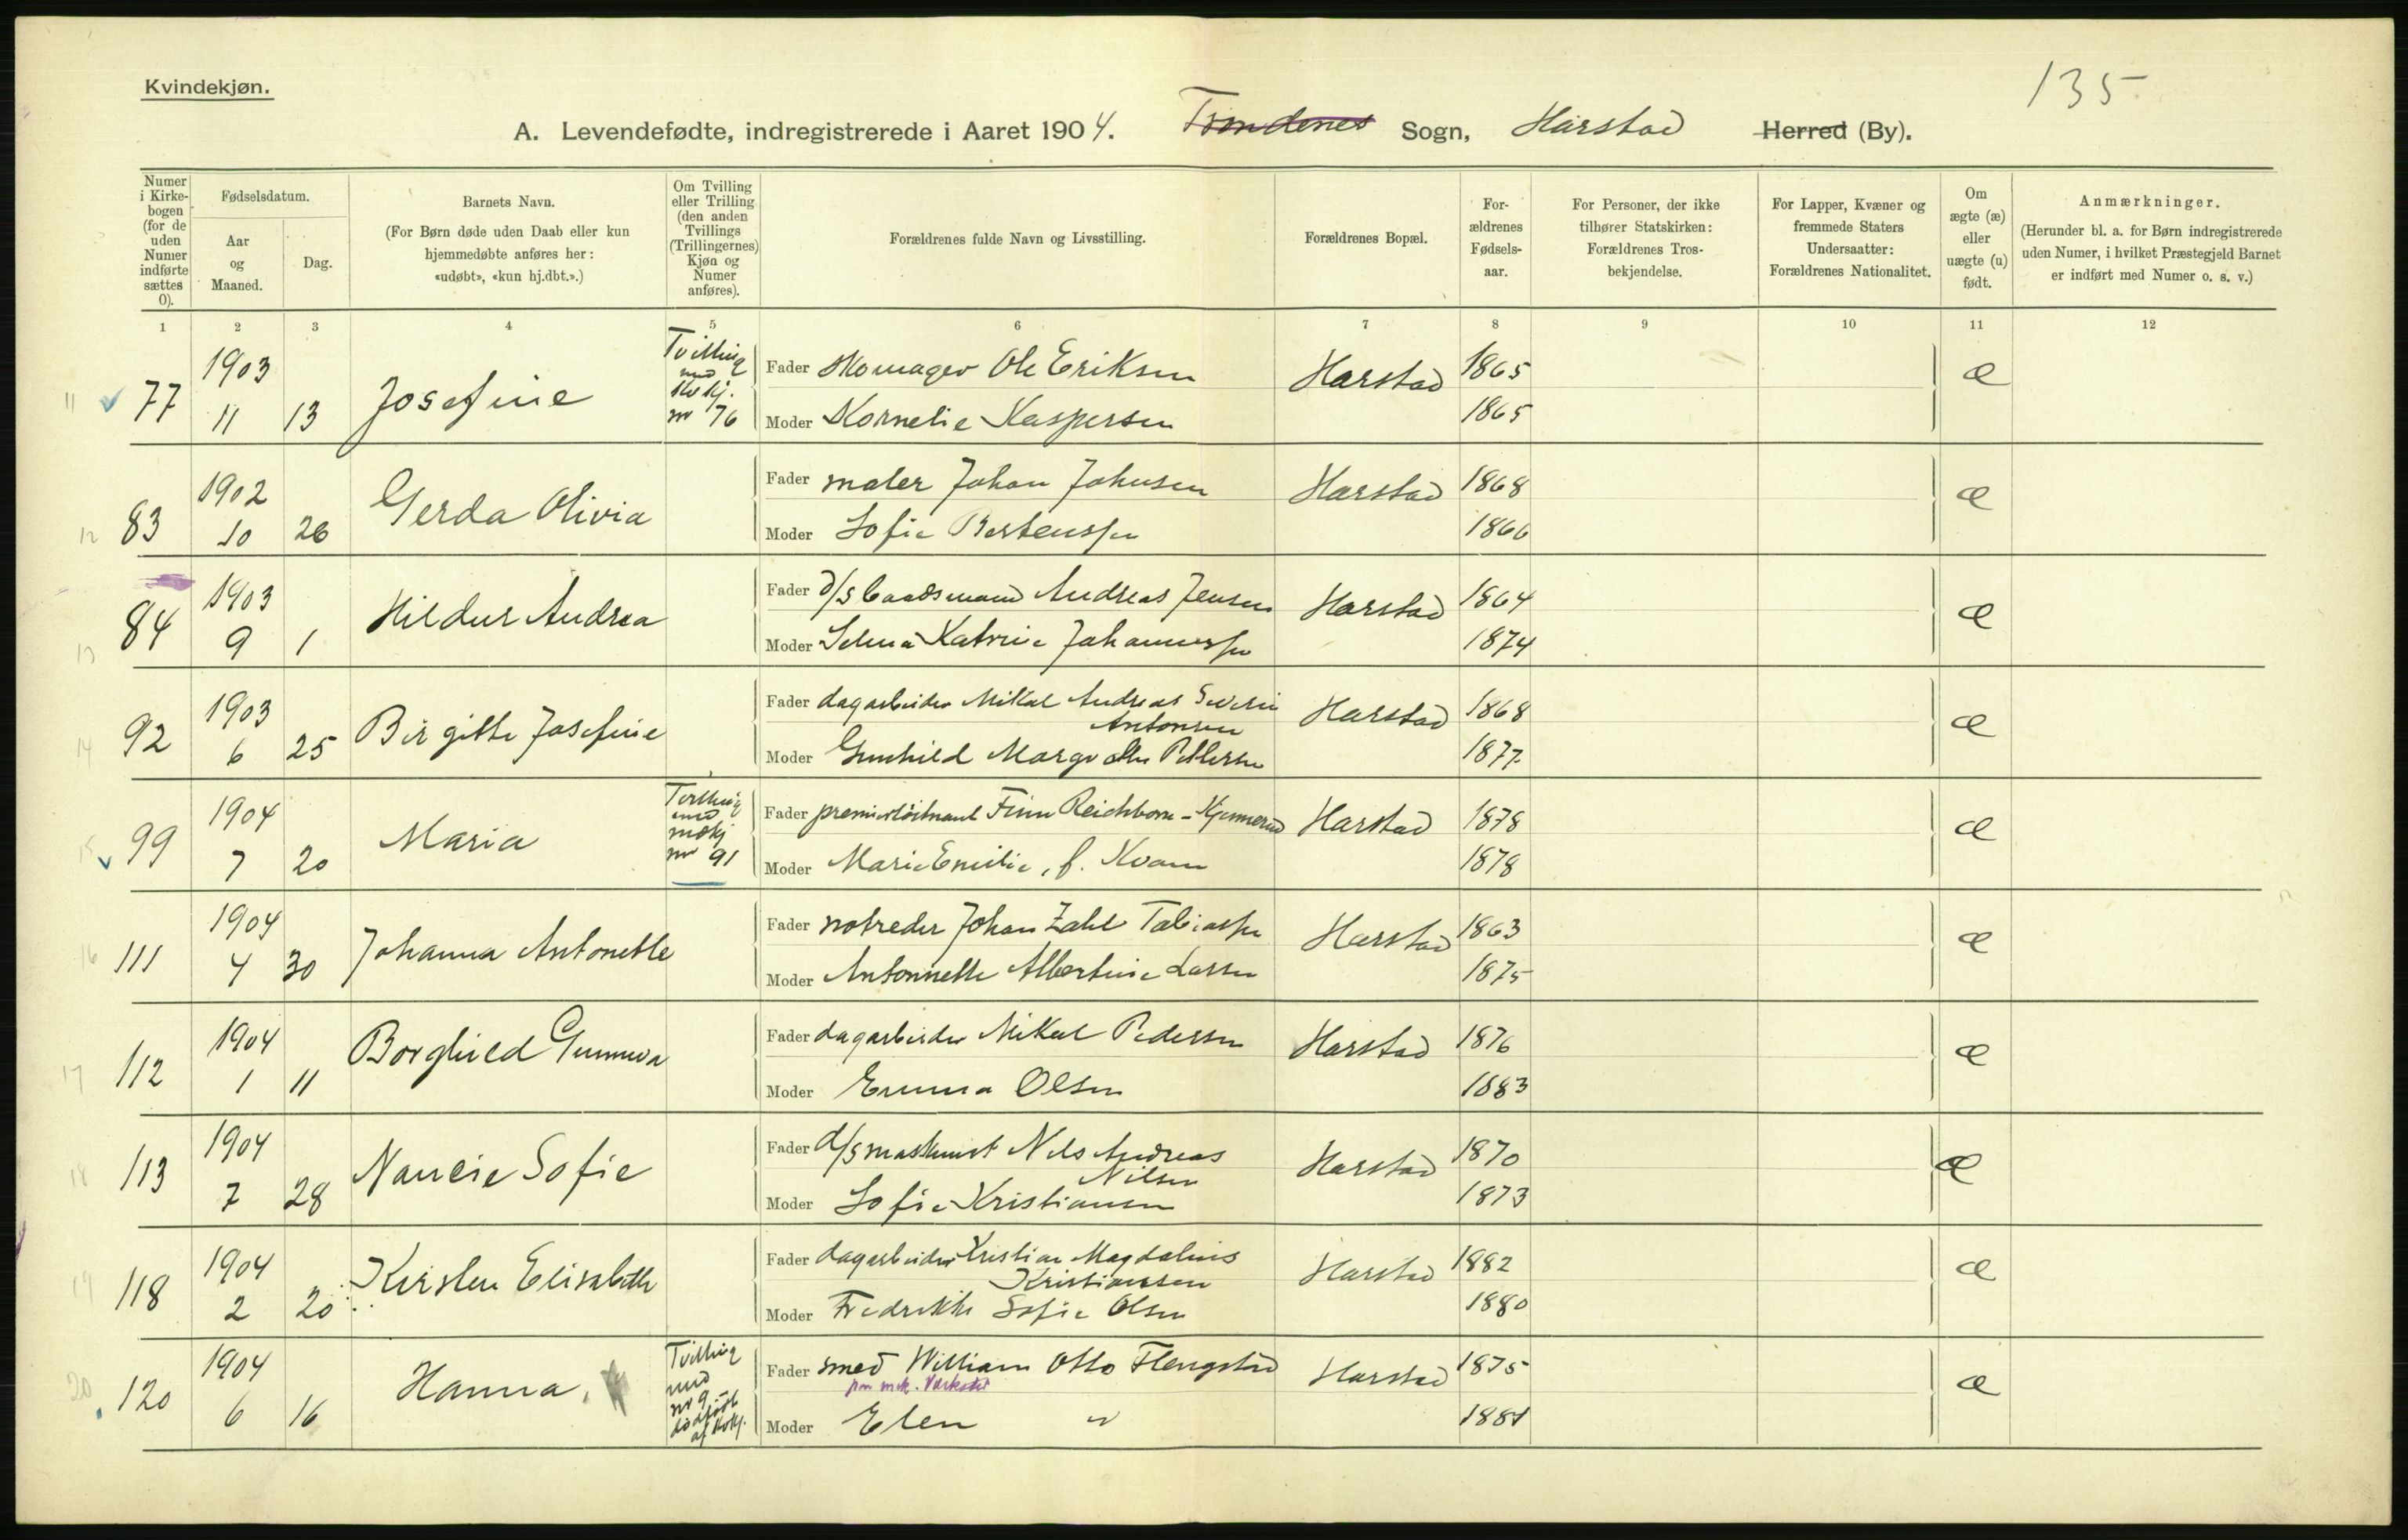 Kvindekjøn.
135
A. Levendefødte, indregistrerede i Aaret 1904. Trondenes Sogn, Harstad Herred (By).
Numer i Kirkebogen (for de uden Numer indførte sættes 0).
Fødselsdatum.
Aar og Maaned.
Dag.
Barnets Navn.
(For Børn døde uden Daab eller kun hjemmedøbte anføres her: «udøbt», «kun hj.dbt.».)
Om Tvilling eller Trilling (den anden Tvillings (Trillingernes) Kjøn og Numer anføres).
Forældrenes fulde Navn og Livsstilling.
Forældrenes Bopæl.
Forældrenes Fødselsaar.
For Personer, der ikke tilhører Statskirken: Forældrenes Trosbekjendelse.
For Lapper, Kvæner og fremmede Staters Undersaatter: Forældrenes Nationalitet.
Om ægte (æ) eller uægte (u) født.
Anmærkninger.
(Herunder bl. a. for Børn indregistrerede uden Numer, i hvilket Præstegjeld Barnet er indført med Numer o. s. v.)
1 2 3 4 5 6 7 8 9 10 11 12
11 77 1903 11 13 Josefine Tvilling med kvkj. nr 76
Fader skomager Ole Eriksen Harstad 1865 æ
Moder Kornelie Kaspersen 1865
12 83 1902 10 26 Gerda Olivia
Fader maler Johan Johnsen Harstad 1868 æ
Moder Sofie Bertenssen 1866
13 84 1903 9 1 Hildur Andrea
Fader d/s baadsmand Andreas Jensen Harstad 1864 æ
Moder Selma Katrine Johannessen 1874
14 92 1903 6 25 Birgitte Josefine
Fader dagarbeider Mikal Andreas Severin
Antonsen Harstad 1868 æ
Moder Gunhild Margrethe Pettersen 1877
15 99 1904 7 20 Maria Tvilling med mdkj nr 91
Fader premierløitnant Finn Reichborn-Kjennerud Harstad 1878 æ
Moder Marie Emilie, f. Kvam 1878
16 111 1904 4 30 Johanna Antonette
Fader notreder Johan Zahl Tobiassen Harstad 1863 æ
Moder Antonnette Albertine Larsen 1875
17 112 1904 1 11 Borghild Gunnva
Fader dagarbeider Mikal Pedersen Harstad 1876 æ
Moder Emma Olsen 1883
18 113 1904 7 28 Nancie Sofie
Fader d/s maskinist Nils Andreas
Nilsen Harstad 1870 æ
Moder Sofie Kristiansen 1873
19 118 1904 2 20 Kirsten Elisabeth
Fader dagarbeider Kristian Magdalius
Kristiansen Harstad 1882 æ
Moder Fredrikke Sofie Olsen 1880
20 120 1904 6 16 Hanna. Tvilling med nr 9 dødfødt af kvkj.
Fader smed William Otto Flengstad Harstad 1875 æ
paa mek. Værksted
Moder Elen " 1881